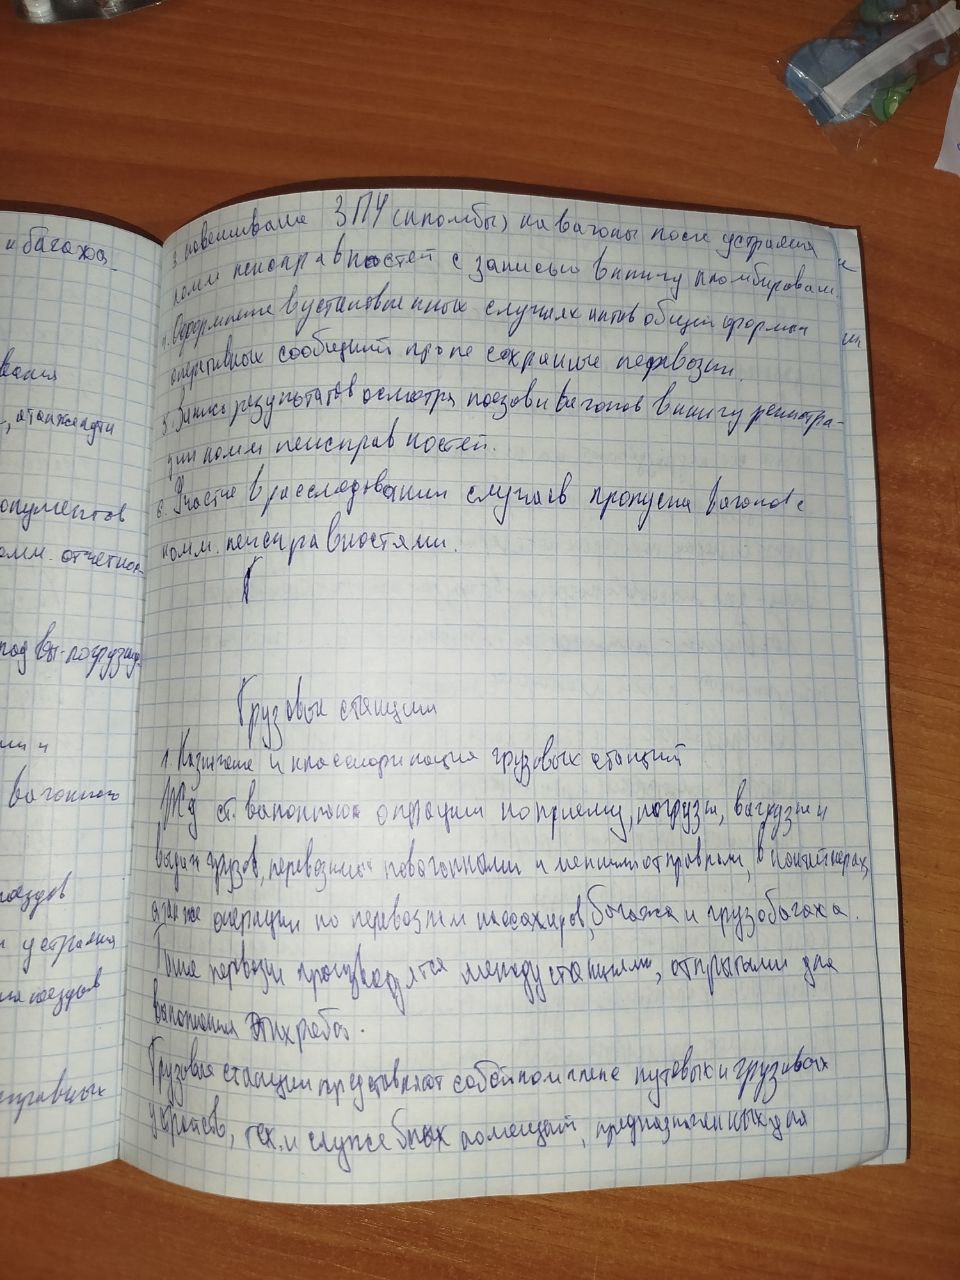 и багажа
вания
, а также пути
окументов
омм. отчетнос-
под вы-погрузку
ми и
вагонного
поездов
и устраня
ия поездов
справных
3. навешивание ЗПУ (пломбы) на вагоны после устранения
комм неисправностей с записью в книгу пломбирован.
4. Оформление в установленных случаях актов общей формы и
оперативных сообщений про не сохранные перевозки.
5. Запись результатов осмотра поездов и вагонов в книгу регистра-
ции комм неисправностей.
6. Участие в расследовании случаев пропуска вагонов с
комм. неисправностями.
Г
Грузовые станции
1. Назначение и классификация грузовых станций
ЖД ст. выполняют операции по приему, погрузки, выгрузки и
выдачи грузов, перевозимых повагонными и мелкими отправками, в контейнерах,
а также операции по перевозкам пассажиров, багажа и грузобагажа.
Такие перевозки производятся между станциями, открытыми для
выполнения этих работ.
Грузовая станции представляют собой комплекс путевых и грузовых
устройств, тех. и служебных помещений, предназначенных для